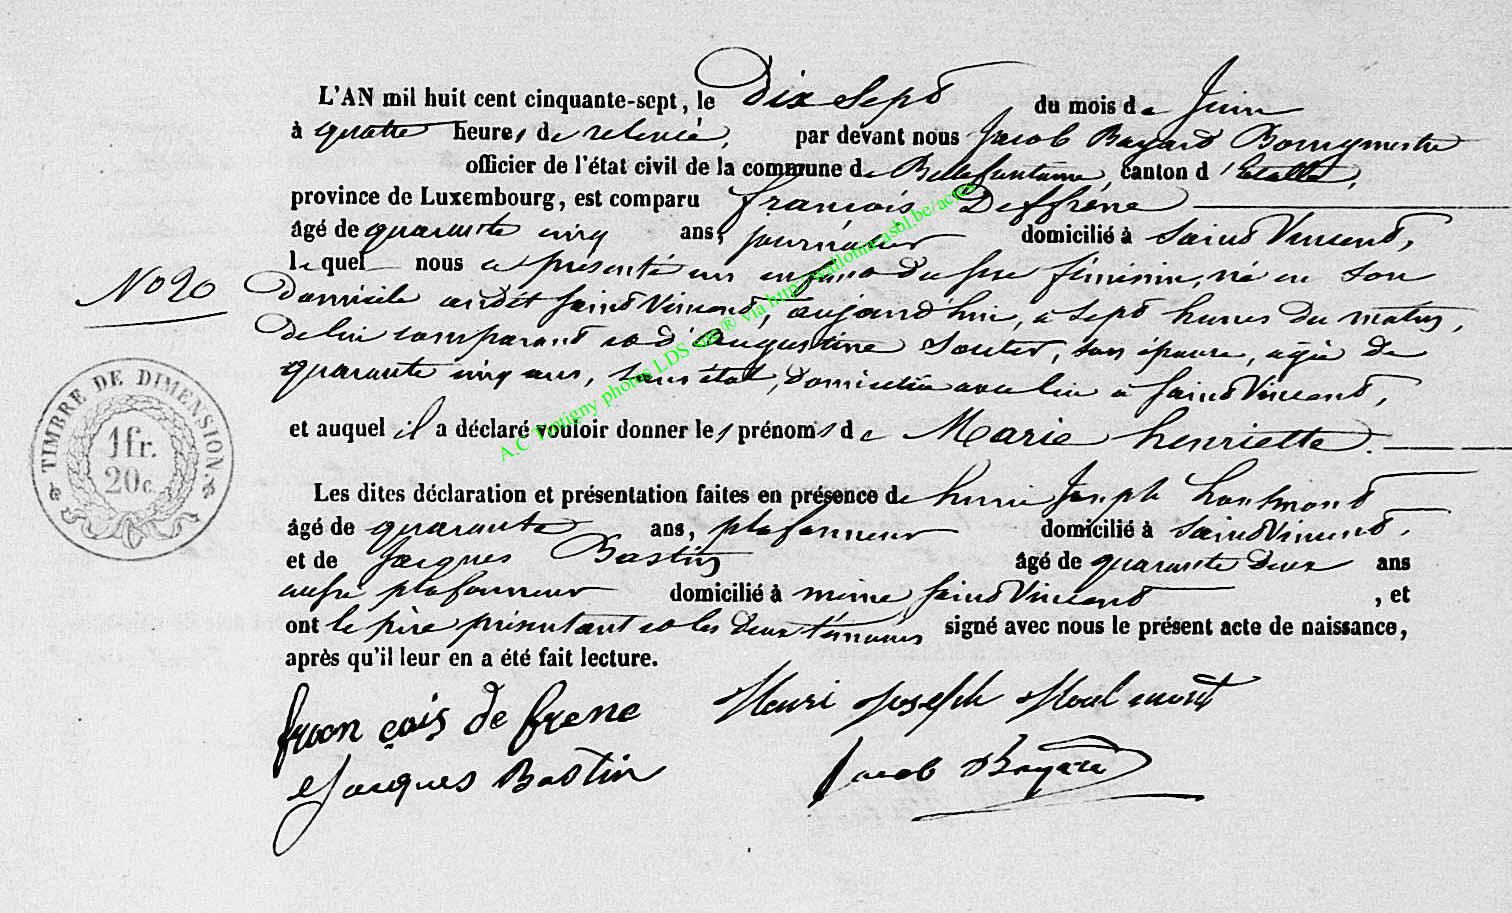 L'AN mil huit cent cinquante-sept, le Dix Sept du mois de Juin
à quatre heures de relevée, par devant nous Jacob Bayard Bourgmestre
officier de l'état civil de la commune de Bellefontaine, canton d'Etalle,
province de Luxembourg, est comparu françois Deffrène
âgé de quarante cinq ans, journalier domicilié à Saint Vincent,
le quel nous a présenté un enfant du sexe féminin, né en son
No 20
domicile audit Saint Vincent, aujourd'hui, à sept heures du matin,
de lui comparant et d'Augustine Souter, son épouse, agée de
quarante cinq ans, sans état, domiciliée avec lui à Saint Vincent,
et auquel il a déclaré vouloir donner les prénoms de Marie henriette.
TIMBRE DE DIMENSION.
1 fr.
20 c.
Les dites déclaration et présentation faites en présence de henri Joseph houlmont
âgé de quarante ans, plafonneur domicilié à Saint Vincent,
et de Jacques Bastin âgé de quarante deux ans
aussi plafonneur domicilié à même Saint Vincent, et
ont le père présentant et les deux témoins signé avec nous le présent acte de naissance,
après qu'il leur en a été fait lecture.
françois de frene Henri Joseph Houlmont
Jacques Bastin Jacob Bayard
A.C Tintigny photos LDS via http://walloniasbl.be/actes